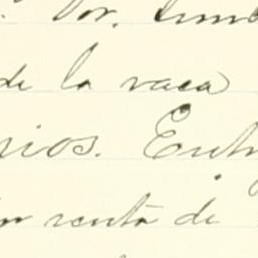 Por.
de la vaca
rios. Entr
renta de